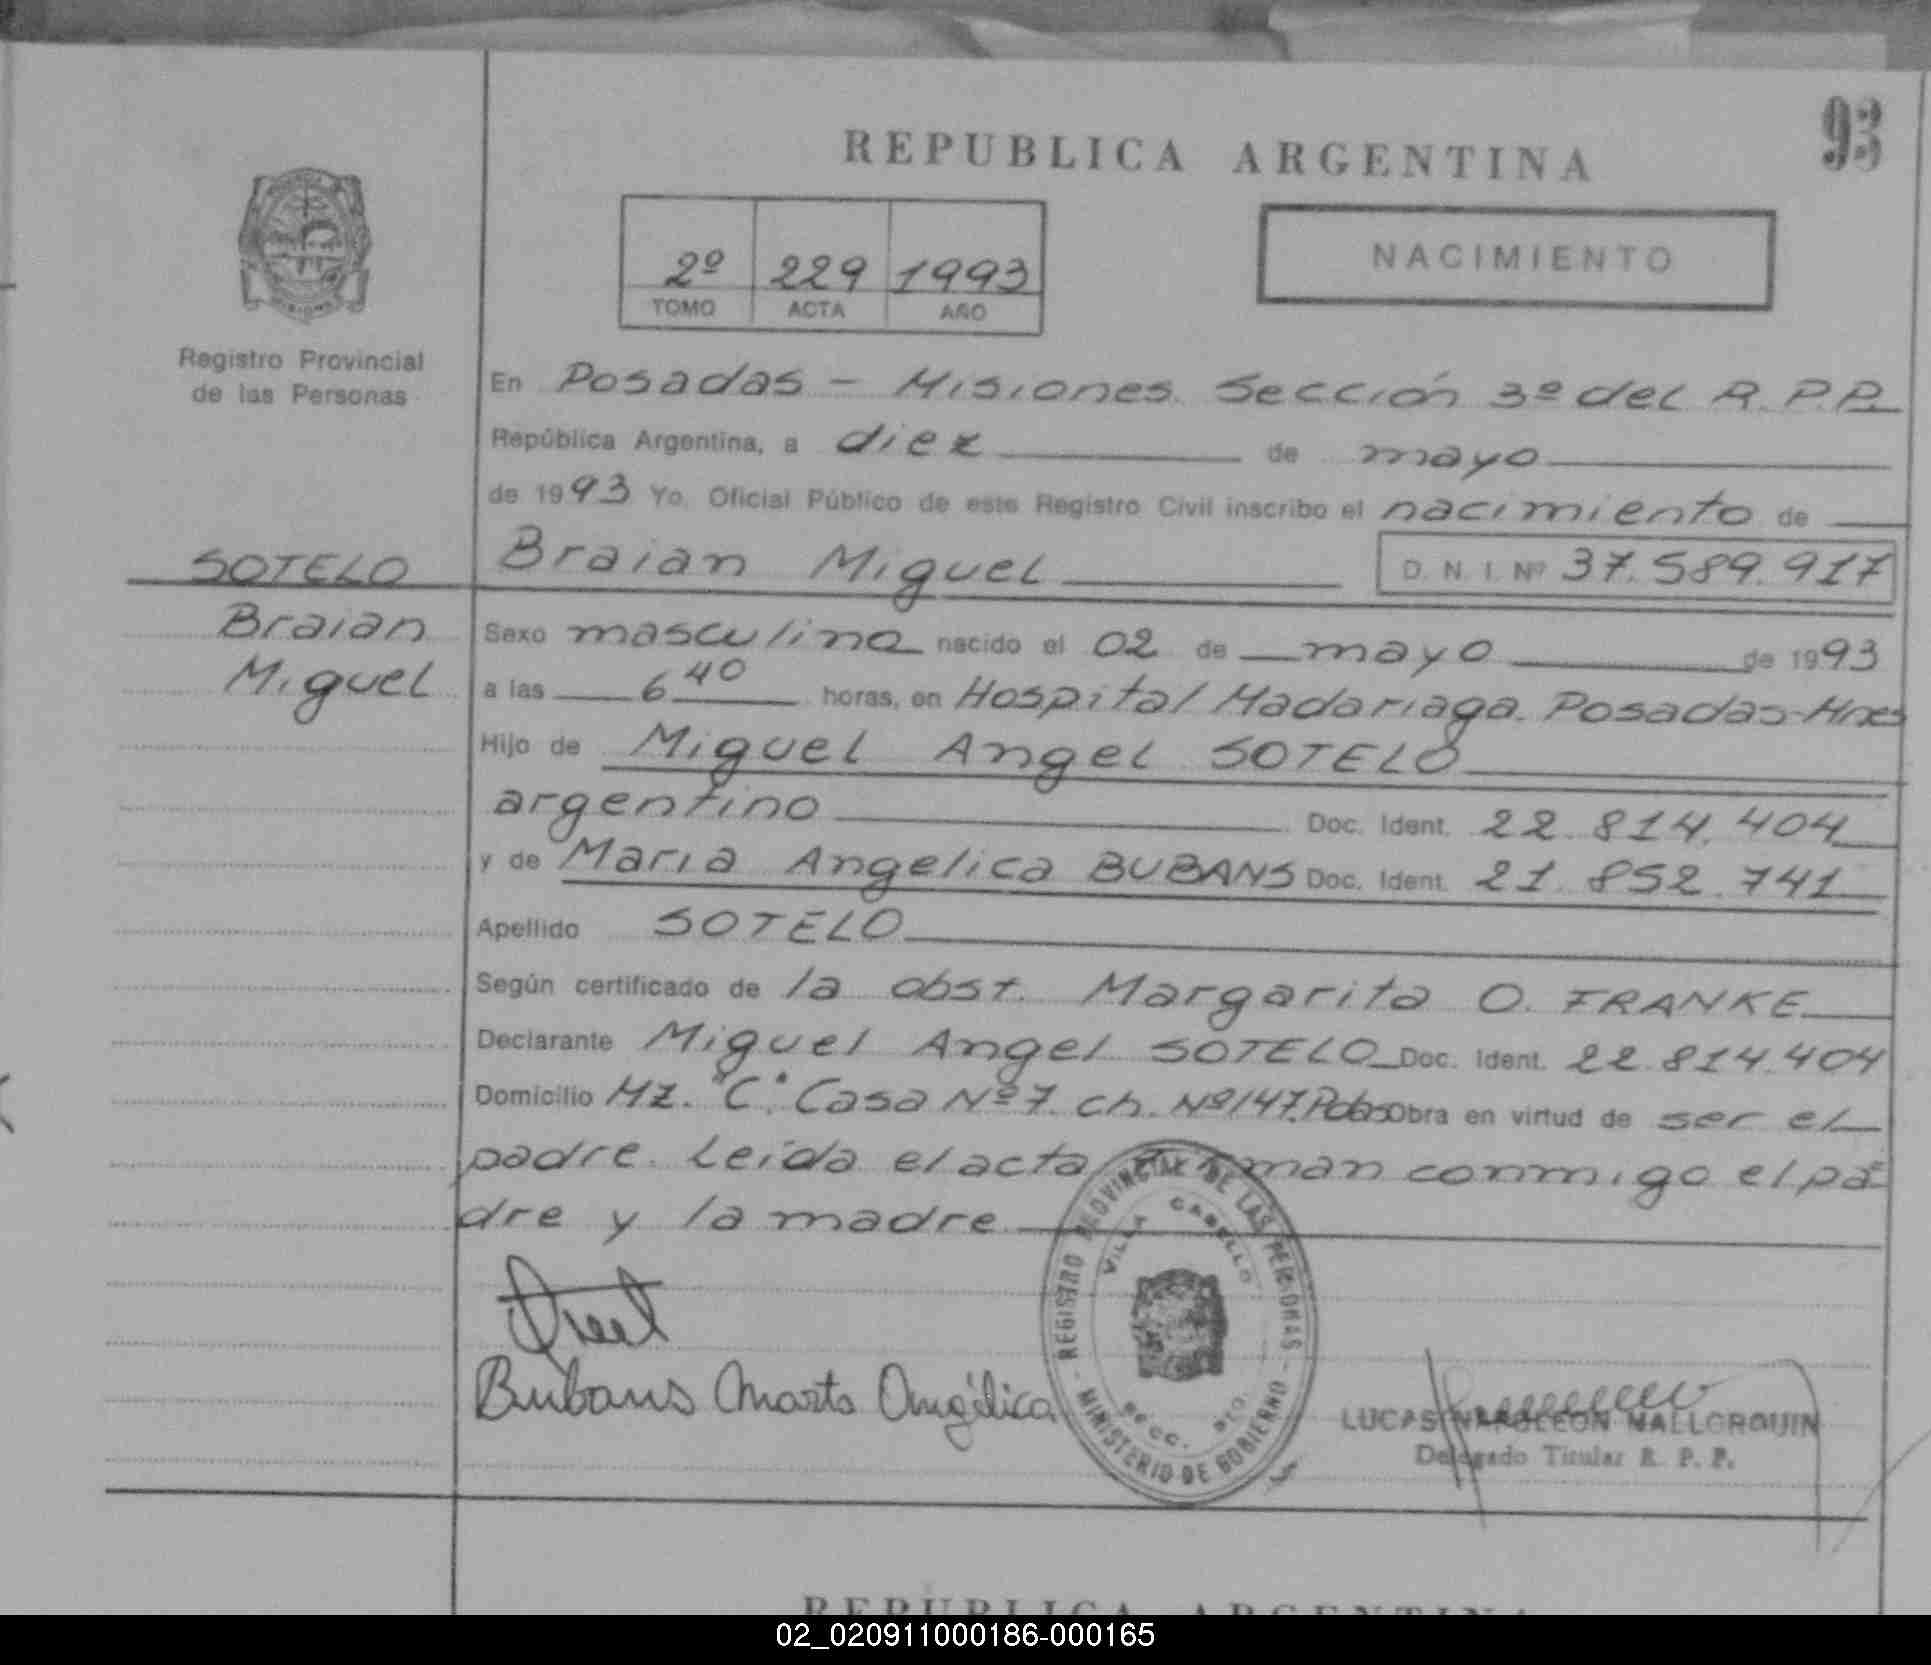 93
REPUBLICA ARGENTINA
NACIMIENTO
2º 229 1993
TOMO ACTA AÑO
Registro Provincial
de las Personas
En Posadas - Misiones. Sección 3º del R.P.P.
República Argentina, a diez de mayo
de 1993 Yo, Oficial Público de este Registro Civil inscribo el nacimiento de
SOTELO
Braian
Miguel
Braian Miguel D. N. I. Nº 37.589.917
Sexo masculino nacido el 02 de mayo de 1993
a las 6 40 horas, en Hospital Madariaga. Posadas-Mnes
Hijo de Miguel Angel SOTELO
argentino Doc. Ident. 22.814.404
y de Maria Angelica BUBANS Doc. Ident. 21.852.741
Apellido SOTELO
Según certificado de la obst. Margarita O. FRANKE
Declarante Miguel Angel SOTELO Doc. Ident. 22.814.404
Domicilio MZ. "C". Casa Nº 7. ch. Nº 147. Pdas Obra en virtud de ser el
padre. Leída el acta firman conmigo el pa
dre y la madre
REGISTRO PROVINCIAL DE LAS PERSONAS
VILLA CABELLO
SECC. 3ro.
- MINISTERIO DE GOBIERNO -
Bubans Marta Angélica
LUCAS NAPOLEON MALLORQUIN
Delegado Titular R. P. P.
REPUBLICA ARGENTINA
02_020911000186-000165